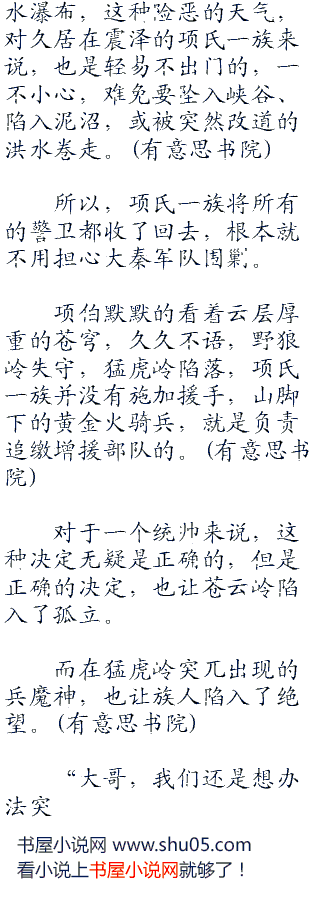 水瀑布，这种险恶的天气，
对久居在震泽的项氏一族来
说，也是轻易不出门的，一
不小心，难免要坠入峡谷、
陷入泥沼，或被突然改道的
洪水卷走。(有意思书院)
所以，项氏一族将所有
的警卫都收了回去，根本就
不用担心大秦军队围剿。
项伯默默的看着云层厚
重的苍穹，久久不语，野狼
岭失守，猛虎岭陷落，项氏
一族并没有施加援手，山脚
下的黄金火骑兵，就是负责
追缴增援部队的。(有意思书
院)
对于一个统帅来说，这
种决定无疑是正确的，但是
正确的决定，也让苍云岭陷
入了孤立。
而在猛虎岭突兀出现的
兵魔神，也让族人陷入了绝
望。(有意思书院)
“大哥，我们还是想办
法突
书屋小说网 www.shu05.com
看小说上书屋小说网就够了！